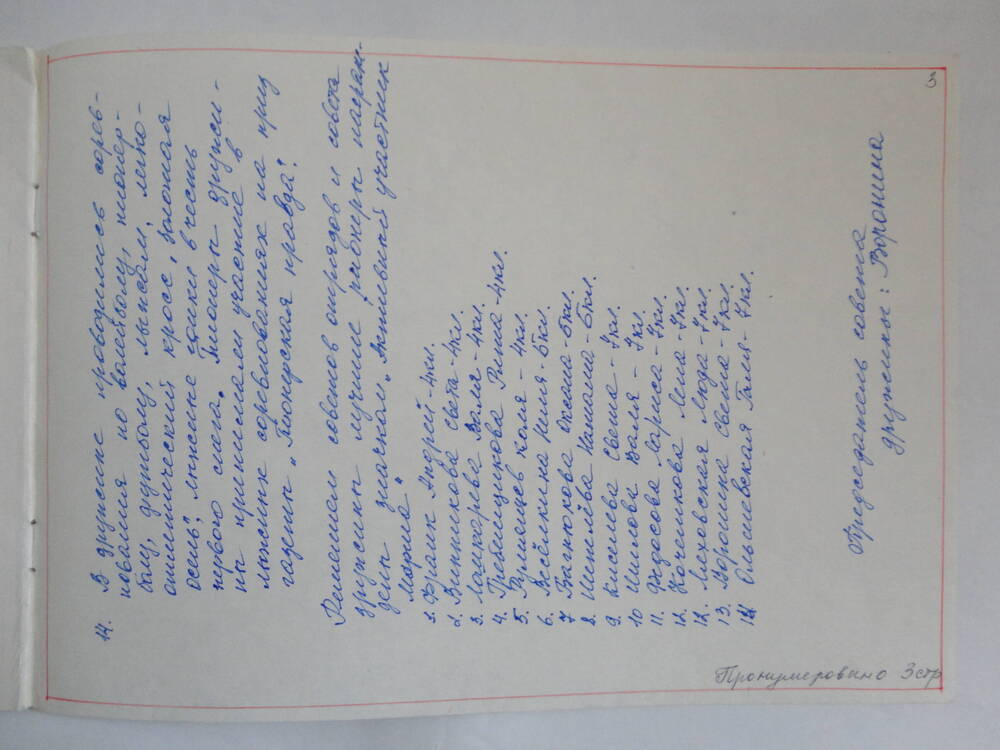 3
14. В дружине проводились сорев-
нования по волейболу, пионер-
болу, футболу, лыжам, легко-
атлетический кросс, „Золотая
осень", лыжные гонки в честь
первого снега. Пионеры дружи-
ны принимали участие в
лыжных соревнованиях на приз
газеты „Пионерская правда".
Решением советов отрядов и совета
дружины лучшие пионеры награж-
дены значком „Активный участник
Марша"
1. Франк Андрей - 4кл.
2. Винникова Света - 4кл.
3. Валя - 4кл.
4. Гребенщикова Рита - 4кл.
5. Румянцев Коля - 4кл.
6. Весёлкина Неля - 5кл.
7 Банюкова Оксана - 5кл.
8. Шмелёва Наташа - 5кл.
9. Киселева Света - 7кл.
10 Шилова Валя - 7кл.
11. Федосова Лариса - 7кл.
12. Коченкова Лена - 7кл.
12. Маховская Люда - 7кл.
13. Воронина Света - 7кл.
14. Ольшевская Галя - 7кл.
Председатель совета
дружины: Воронина
Пронумеровано 3 стр